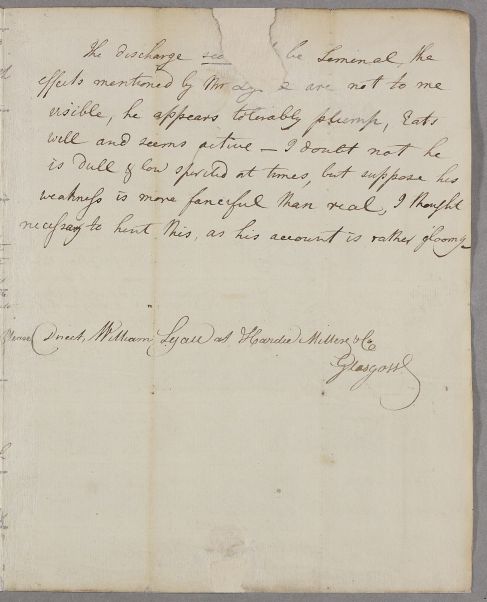 The discharge see be Seminal, the
effects mentioned by Mr are not to me
visible, he appears tolerably plump, Eats
well and seems active — I doubt not he
is dull & low spirited at times, but suppose his
weakness is more fanceful than real, I thought
necessary to hint this, as his account is rather gloomy —
Direct, William Lyall at Hardie Millers & Co
Glasgow